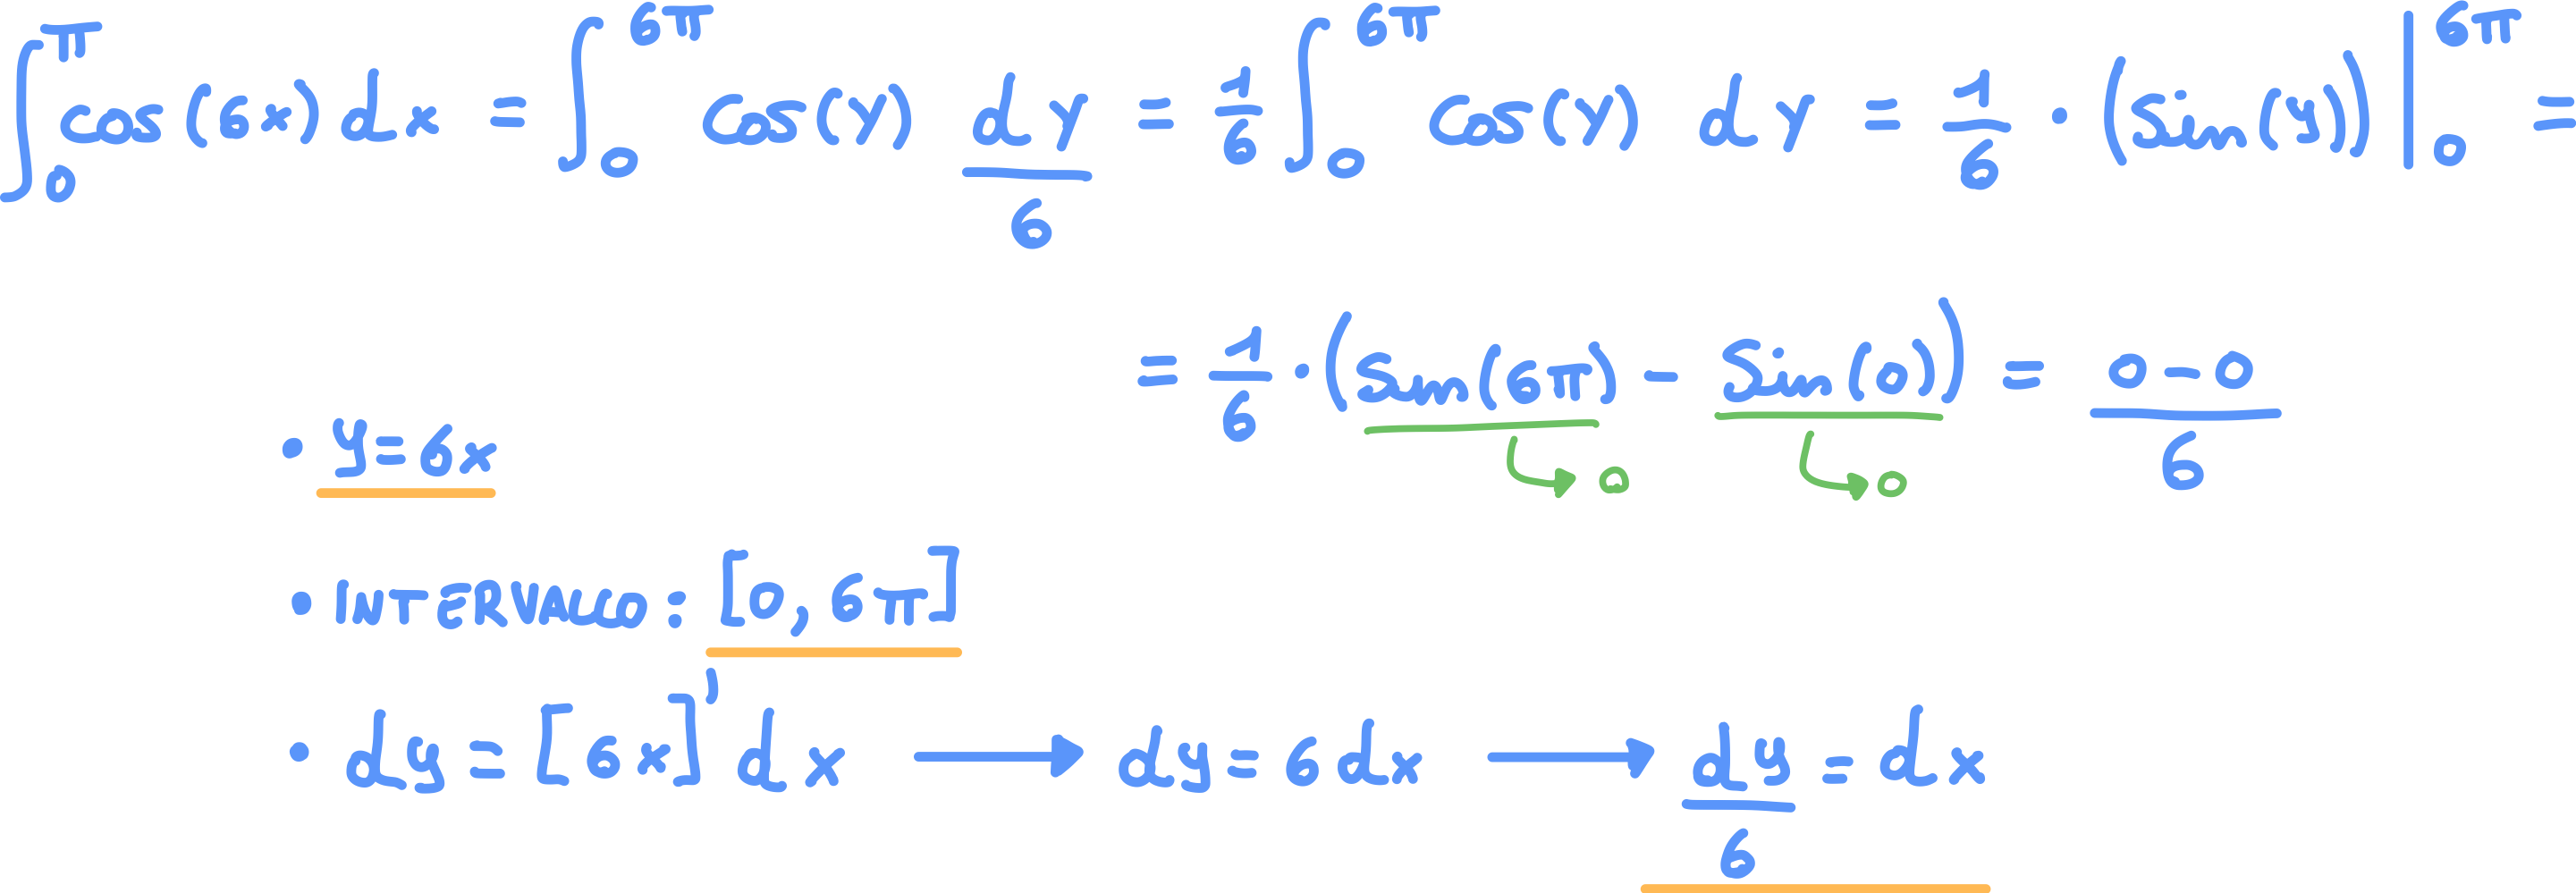 ∫₀^π cos(6x) dx = ∫₀^{6π} cos(y) dy/6 = 1/6 ∫₀^{6π} cos(y) dy = 1/6 · (sin(y)) |₀^{6π} =
= 1/6 · (sin(6π) - sin(0)) = (0-0)/6
→ 0 → 0
• y=6x
• INTERVALLO: [0, 6π]
• dy = [6x]' dx → dy = 6 dx → dy/6 = dx